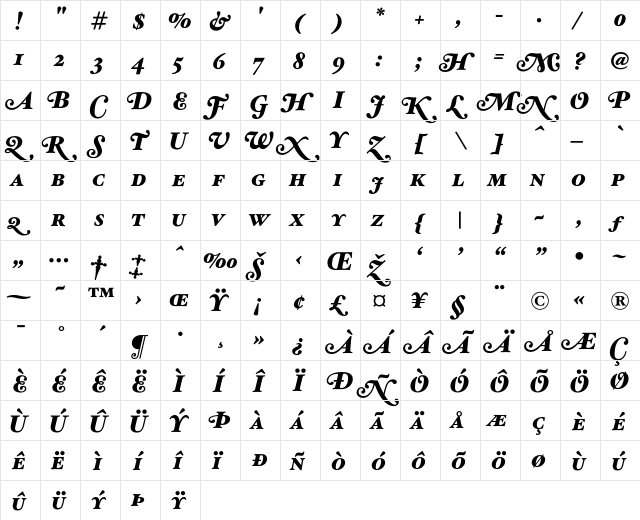 ! " # $ % & ' ( ) * + , - . / 0
1 2 3 4 5 6 7 8 9 : ; H = M ? @
A B C D E F G H I J K L M N O P
Q R S T U V W X Y Z [ \ ] ^ _ `
A B C D E F G H I J K L M N O P
Q R S T U V W X Y Z { | } ~ , ƒ
„ … † ‡ ˆ ‰ Š ‹ Œ Ž ‘ ’ “ ” • –
— ˜ ™ › Œ Ÿ ¡ ¢ £ ¤ ¥ § ¨ © « ®
¯ ° ´ ¶ · ¸ » ¿ À Á Â Ã Ä Å Æ Ç
È É Ê Ë Ì Í Î Ï Ð Ñ Ò Ó Ô Õ Ö Ø
Ù Ú Û Ü Ý Þ À Á Â Ã Ä Å Æ Ç È É
Ê Ë Ì Í Î Ï Ð Ñ Ò Ó Ô Õ Ö Ø Ù Ú
Û Ü Ý Þ Ÿ